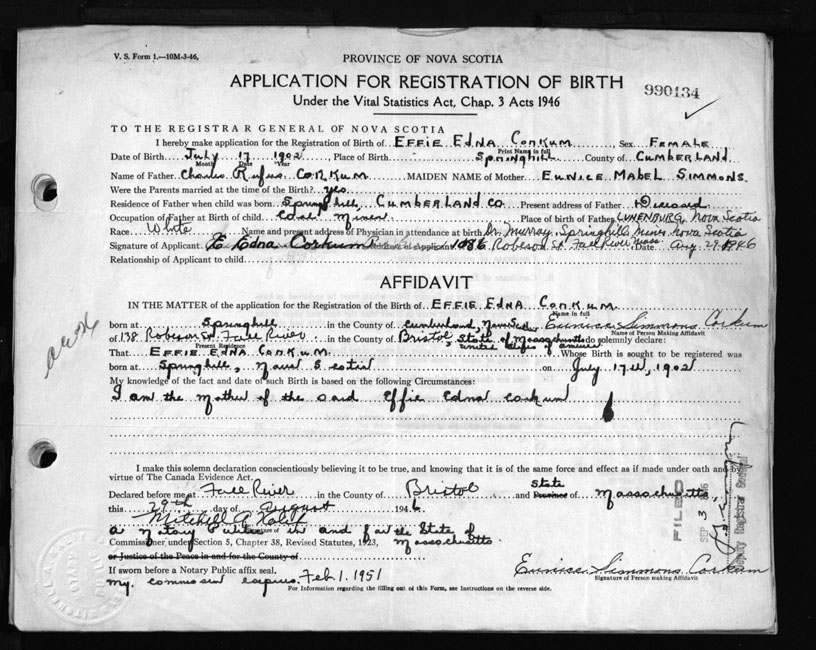 V. S. Form 1.—10M-3-46,
PROVINCE OF NOVA SCOTIA
APPLICATION FOR REGISTRATION OF BIRTH
990134
Under the Vital Statistics Act, Chap. 3 Acts 1946
TO THE REGISTRAR GENERAL OF NOVA SCOTIA
I hereby make application for the Registration of Birth of EFFIE EDNA CORKUM Sex FEMALE
Print Name in full
Date of Birth July 17 1902, Place of Birth Springhill County of CUMBERLAND
Month Date Year
Name of Father Charles Rufus CORKUM MAIDEN NAME of Mother EUNICE MABEL SIMMONS.
Were the Parents married at the time of the Birth? yes
Residence of Father when child was born Springhill, CUMBERLAND CO Present address of Father Deceased
Occupation of Father at Birth of child Coal Miner Place of birth of Father LUNENBURG, Nova Scotia
Race White Name and present address of Physician in attendance at birth Dr. Murray, Springhill Mines Nova Scotia
Signature of Applicant E Edna Corkum Address of Applicant Robeson St. Fall River Mass Date Aug. 29 1946
Relationship of Applicant to child
AFFIDAVIT
IN THE MATTER of the application for the Registration of the Birth of EFFIE EDNA CORKUM
Name in full
born at Springhill in the County of Cumberland, Nova Scotia Eunice Simmons Corkum
Name of Person Making Affidavit
of 138 Robeson St. Fall River in the County of Bristol, State of Massachusetts do solemnly declare:
Present Residence United States of America
That EFFIE EDNA CORKUM Whose Birth is sought to be registered was
born at Springhill, Nova Scotia on July 17th, 1902
My knowledge of the fact and date of such Birth is based on the following Circumstances:
I am the mother of the said Effie Edna Corkum
I make this solemn declaration conscientiously believing it to be true, and knowing that it is of the same force and effect as if made under oath and by
virtue of The Canada Evidence Act.
State
Declared before me at Fall River in the County of Bristol and Province of Massachusetts,
this 29th day of August 1946
Mitchell
a Notary Public in and for the State of
Commissioner under Section 5, Chapter 38, Revised Statutes, 1923, Massachusetts
or Justice of the Peace in and for the County of
If sworn before a Notary Public affix seal.
My commission expires Feb. 1. 1951
Eunice Simmons Corkum
Signature of Person making Affidavit
For Information regarding the filling out of this Form, see Instructions on the reverse side.
FILED
SEP 3
Deputy Registrar General